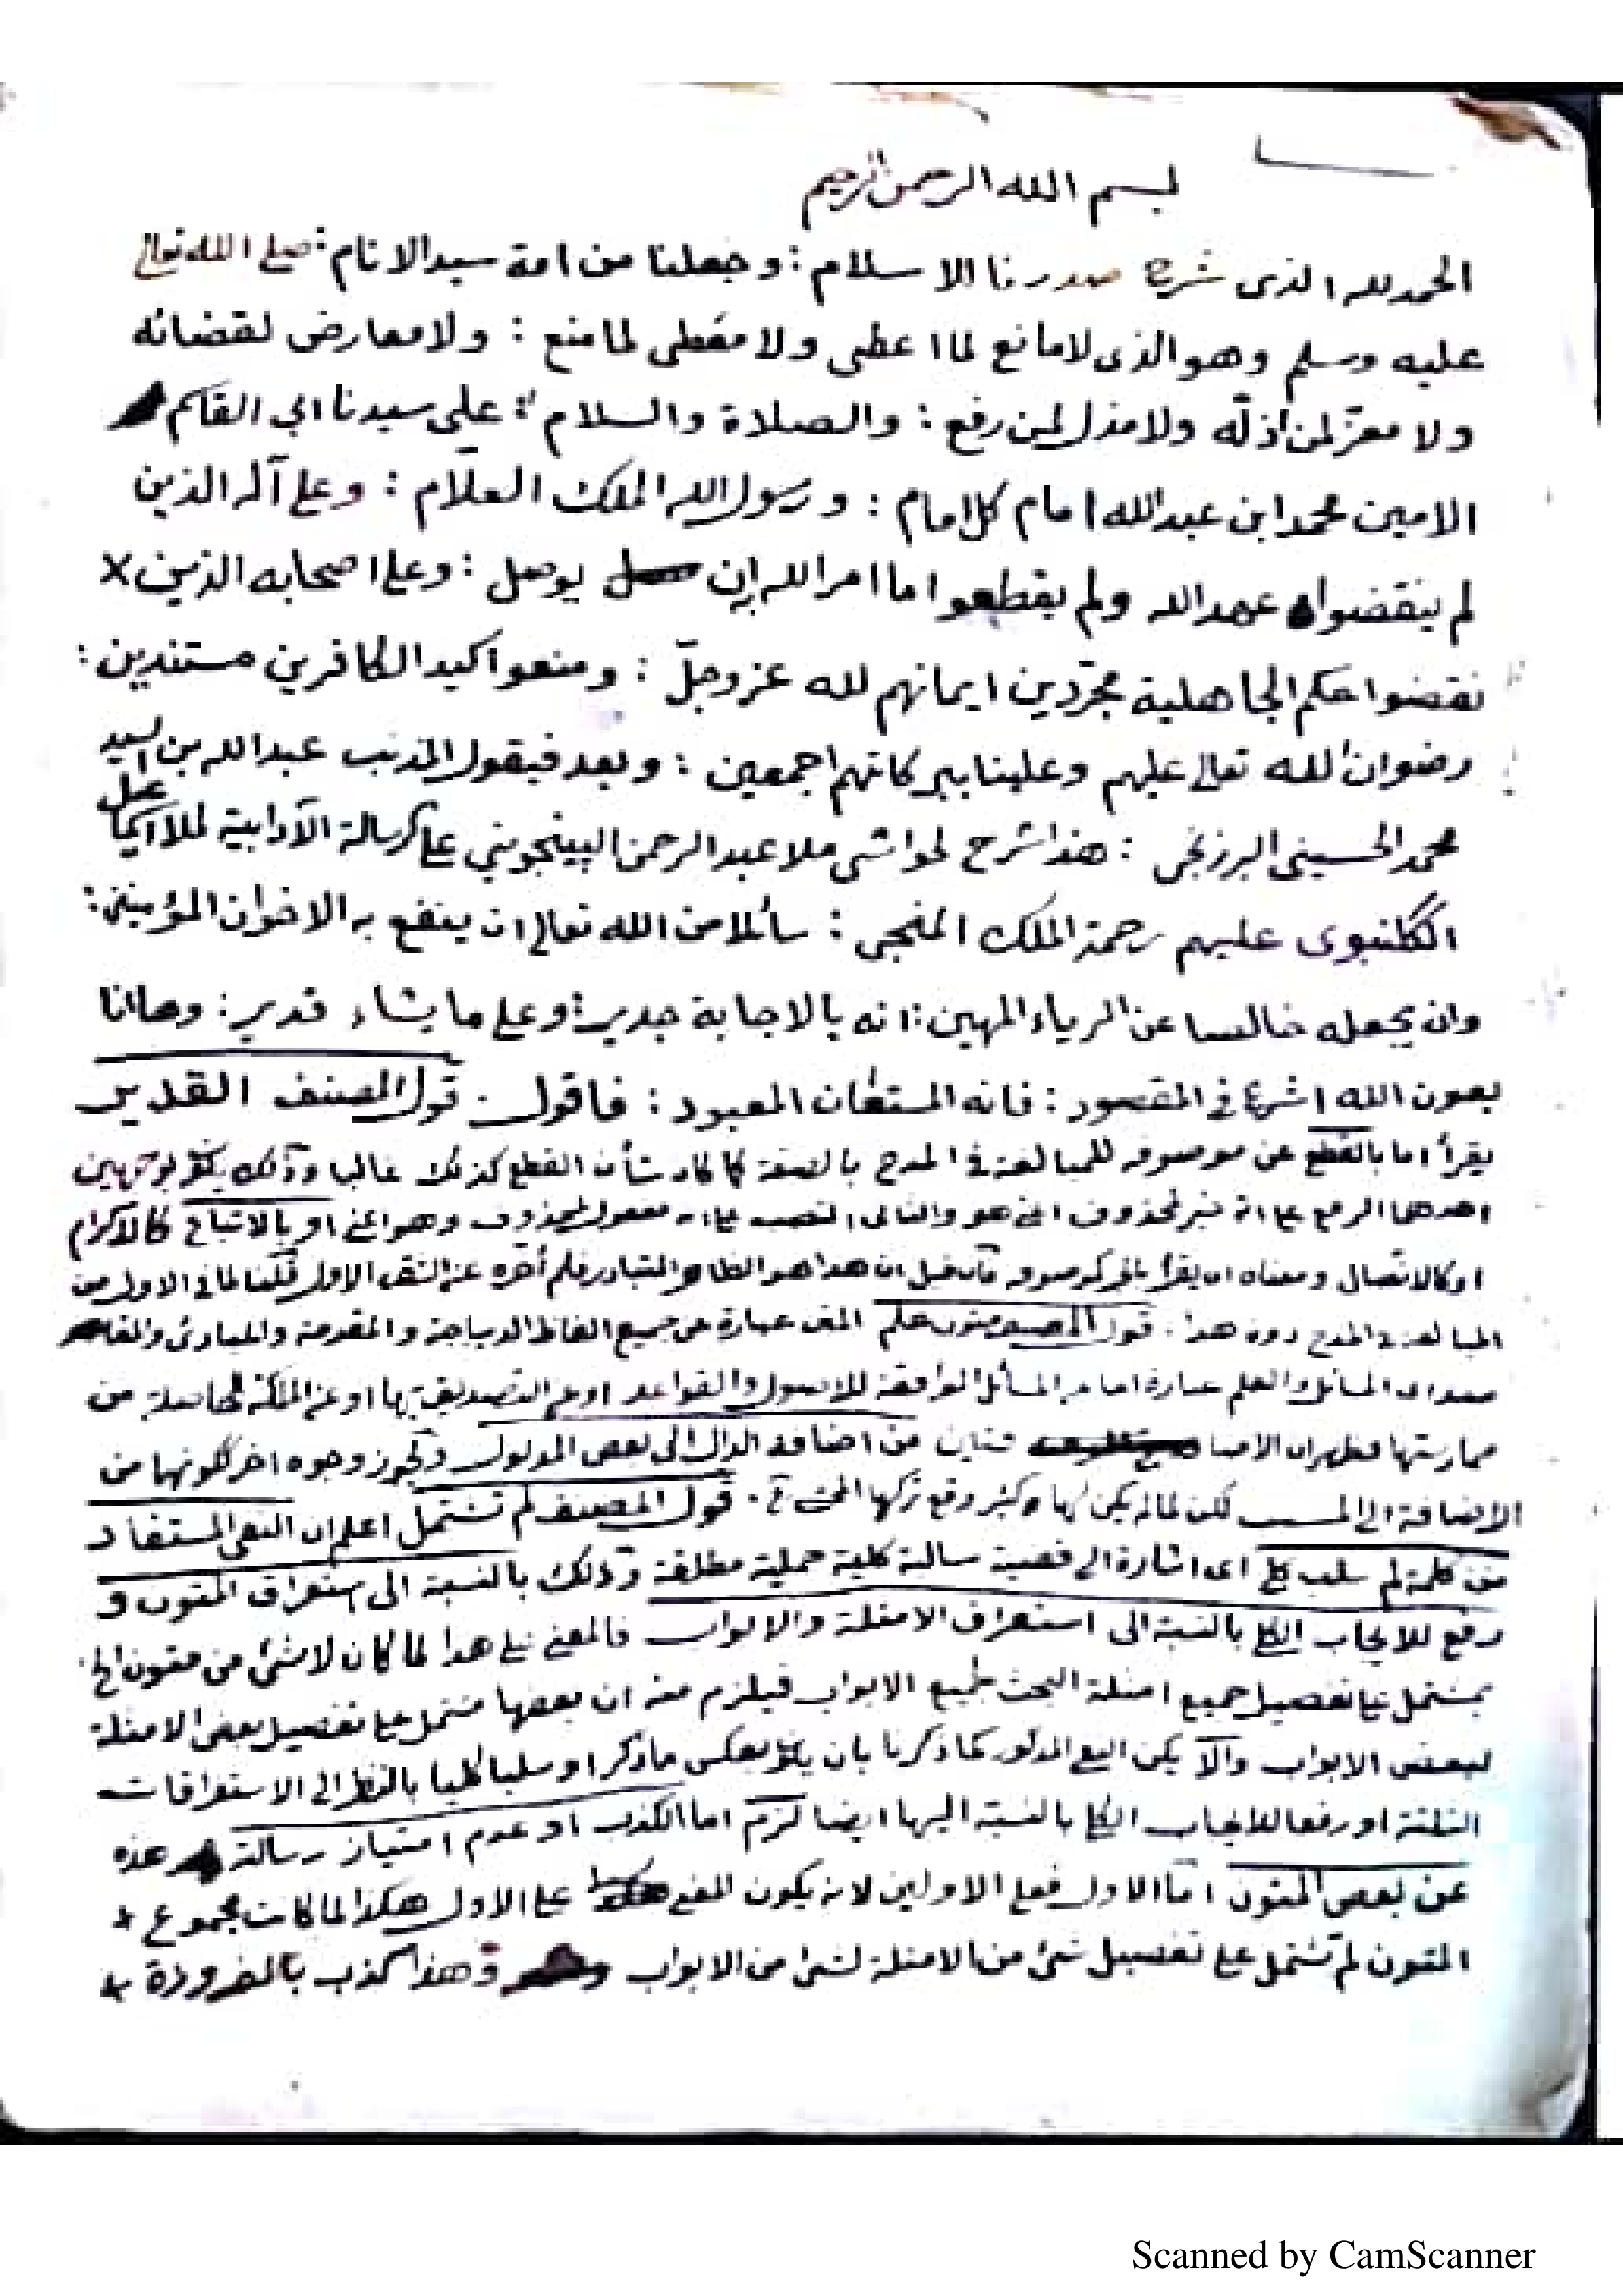 بسم الله الرحمن الرحيم
الحمد لله الذى شرح صدرنا الاسلام : وجعلنا من امة سيد الانام : صلى الله تعالى
عليه وسلم وهو الذى لا مانع لما اعطى ولا معطى لما منع : ولا معارض لقضائه
ولا معزّ لمن اذلّه ولا مذل لمن رفع : والصلاة والسلام : على سيدنا ابى القاسم
الامين محمد ابن عبدالله امام كل امام : ورسول الله الملك العلّام : وعلى آله الذين
لم ينقضوا عهد الله ولم يقطعوا ما امر الله ان يوصل : وعلى اصحابه الذين
نقضوا حكم الجاهلية مجرّدين ايمانهم لله عز وجلّ : ومنعوا كيد الكافرين مستندين :
رضوان الله تعالى عليهم وعلينا ببركاتهم اجمعين : وبعد فيقول المذنب عبدالله بن السيد
محمد الحسينى البرزنجى : هذا شرح لحواشى ملا عبدالرحمن البينجوينى على رسالة الآدابية لملا اسماعيل
الكلنبوى عليهم رحمة الملك المنجى : سائلا من الله تعالى ان ينفع به الاخوان المؤمنين :
وان يجعله خالصا عن الرياء المهين : انه بالاجابة جدير : وعلى ما يشاء قدير : وها انا
بعون الله اشرع فى المقصود : فانه المستعان المعبود : فاقول . قول المصنف القدير
يقرأ اما بالقطع عن موصوفه للمبالغة فى المدح بالصفة كما كان شأن القطع كذلك غالبا وذلك بوجهين
احدهما الرفع على انه خبر لمحذوف اعنى هو والثانى النصب على انه مفعول لمحذوف وهو اعنى او بالاتباع كالاكرام
او كالاتصال ومعناه ان يقرأ بالجر كموصوفه فان قيل ان هذا هو الظاهر المتبادر فلم أخّره عن الشق الاول قلنا لما فى الاول من
المبالغة فى المدح دون هذا . قول المصنف متون علم المتن عبارة عن جميع الفاظ الديباجة والمقدمة والمبادئ والمقاصد
المسائل والعلم عبارة اما عن المسائل الموافقة للاصول والقواعد او عن التصديق بها او عن الملكة الحاصلة من
ممارستها فظهر ان من اضافة الدال الى بعض المدلول وتجوز وجوه اخر ككونها من
الاضافة الى لكن لما لم يكن لها وقع تركها . قول المصنف لم تشتمل اعلم ان النفى المستفاد
من كلمة لم سلب كلى اى اشارة الى قضية سالبة كلية حملية مطلقة وذلك بالنسبة الى استغراق المتون و
رفع للايجاب الكلى بالنسبة الى استغراق الامثلة والابواب فالمعنى على هذا لما كان لا شئ من متون
بمشتمل على تفصيل جميع امثلة البحث لجميع الابواب فيلزم منه ان بعضها مشتمل على تفصيل بعض الامثلة
لبعض الابواب والّا يكن كما ذكرنا بان بعكس ما ذكر او سلبا كليا بالنظر الى الاستغراقات
الثلثة او رفعا للايجاب الكلى بالنسبة اليها ايضا لزم اما الكذب او عدم امتياز رسالة هذه
عن بعض المتون اما الاول فعلى الاولين لانه يكون المعنى على الاول هكذا لما كانت مجموع
المتون لم تشتمل على تفصيل شئ من الامثلة لشئ من الابواب وهذا كذب بالضرورة
Scanned by CamScanner